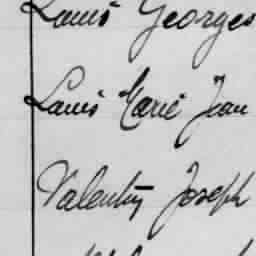 Louis Georges
Louis Marie Jean
Valentin Joseph